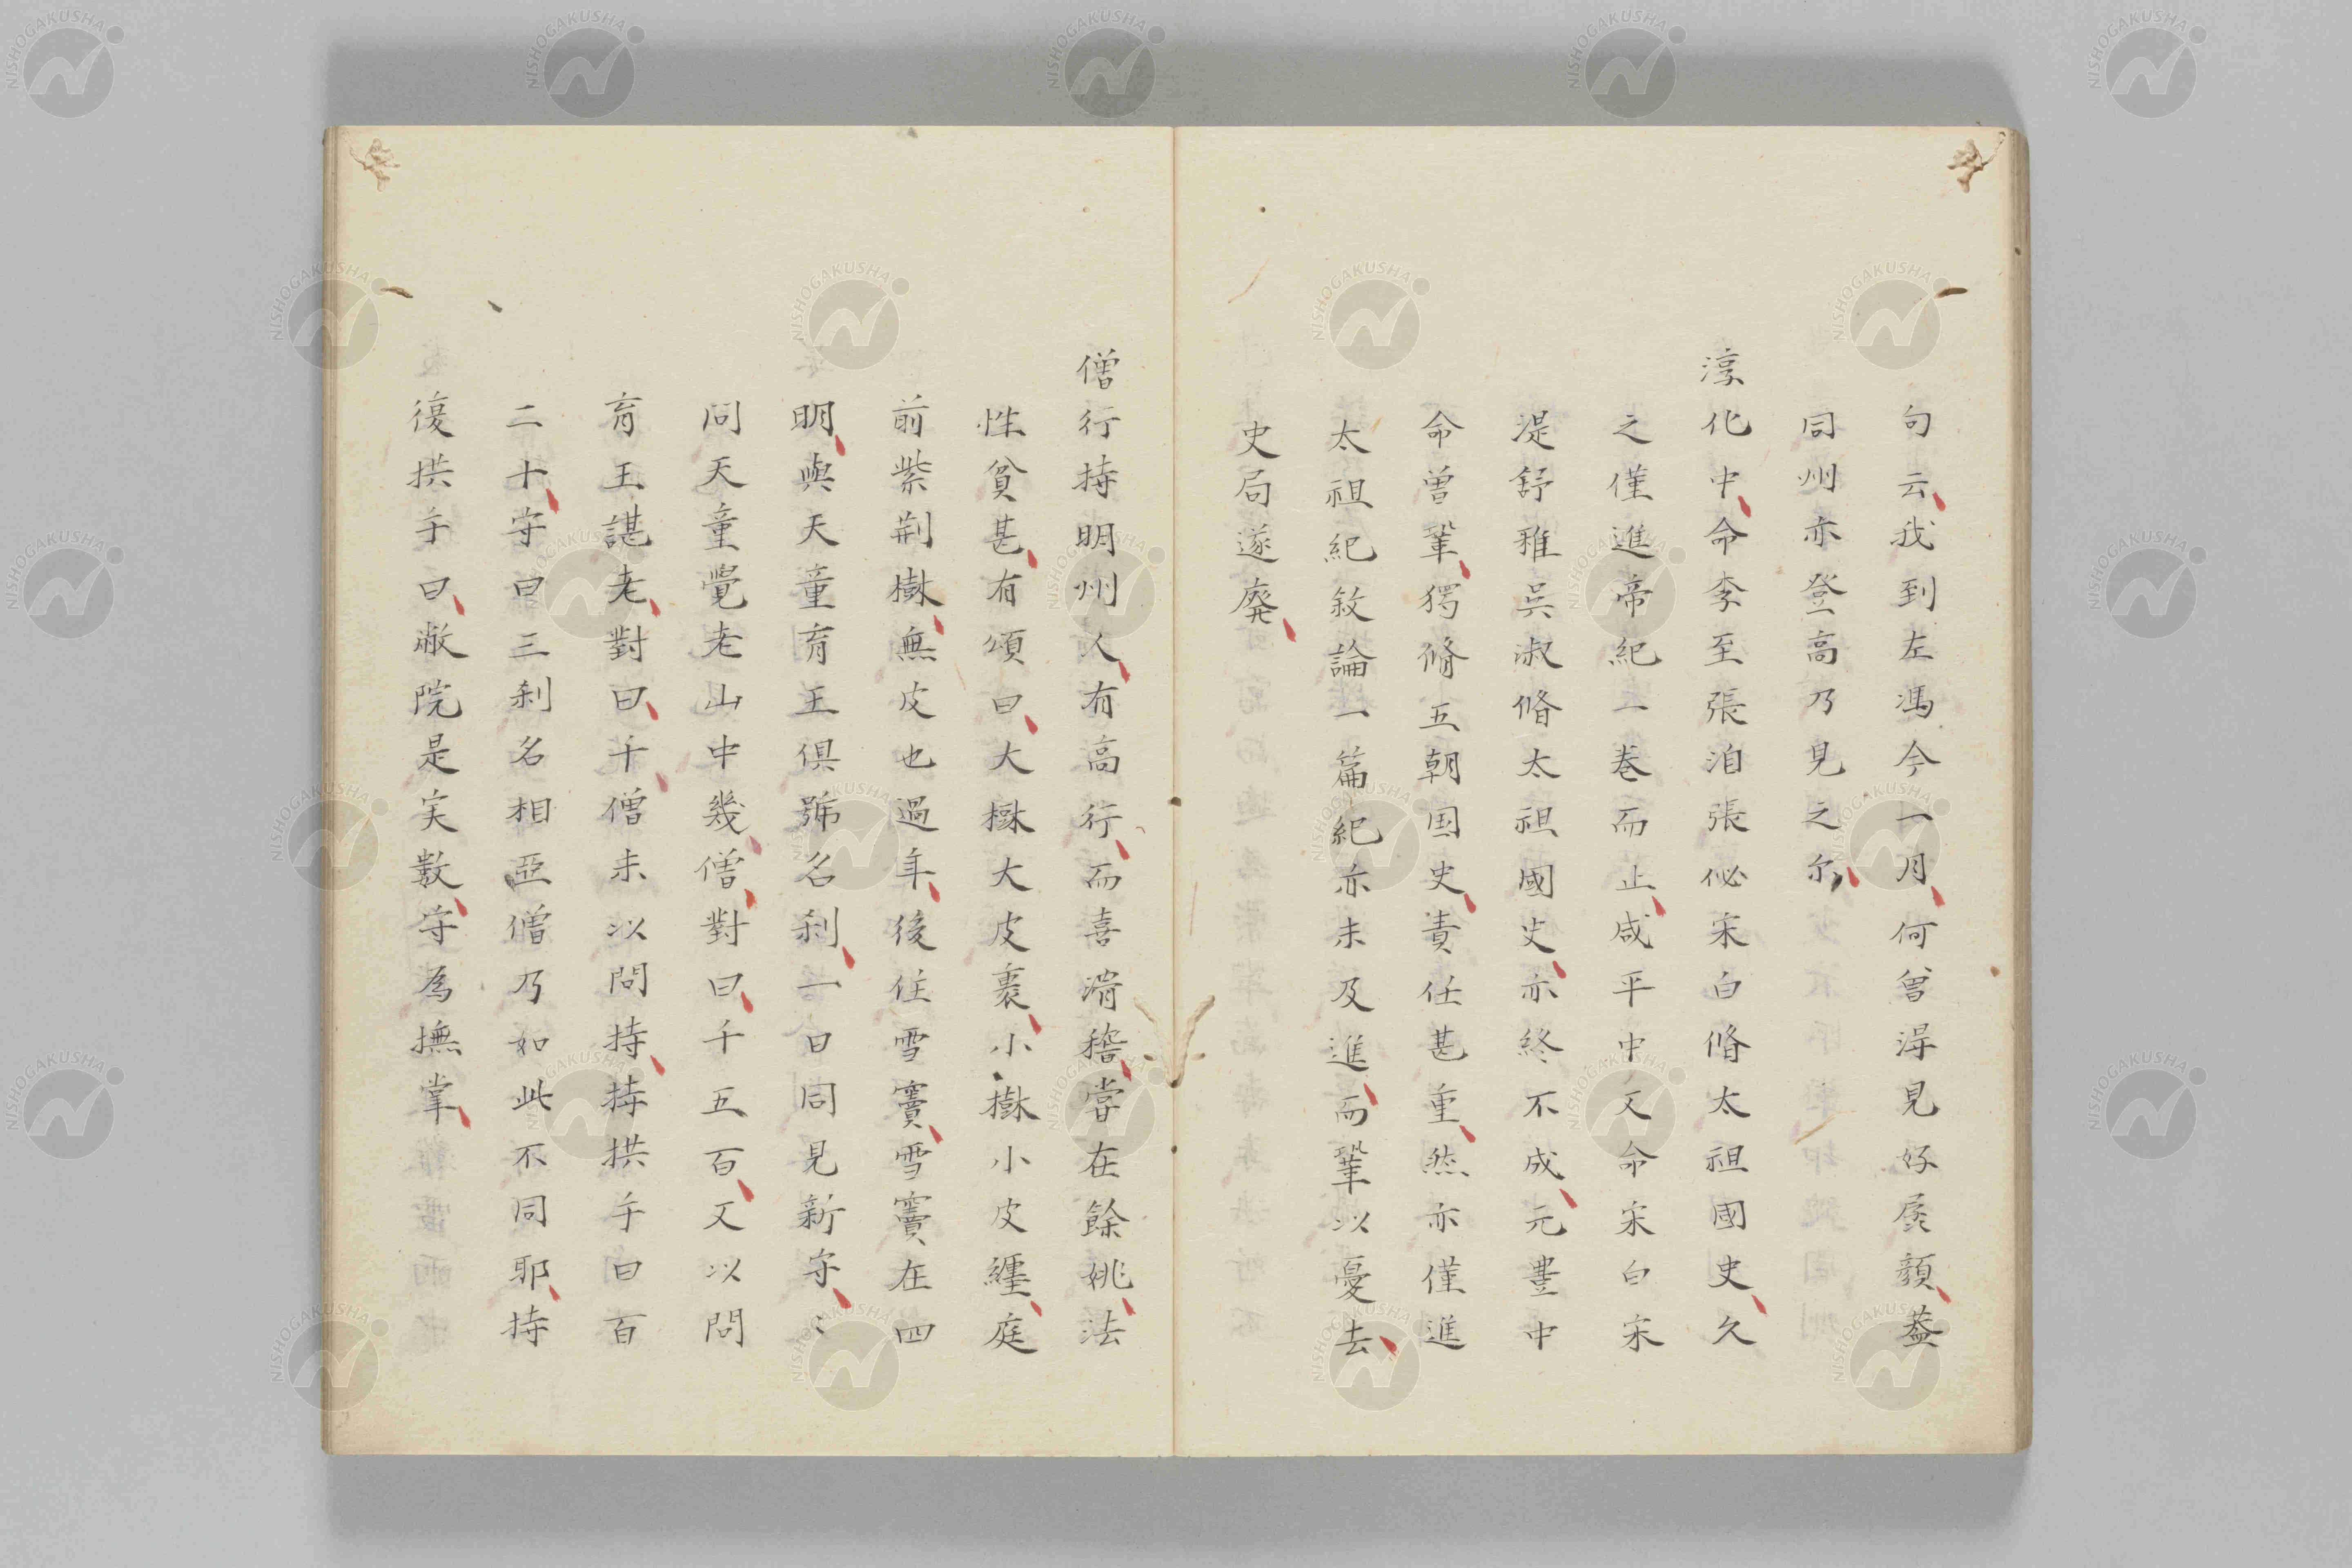 句云我到左馮今一月何曽得見好孱顔葢
同州亦登高乃見之尓
淳化中命李至張洎張佖宋白脩太祖國史久
之僅進帝紀一巻而止咸平中又命宋白宋
湜舒雅吳淑脩太祖國史亦終不成元豊中
命曽鞏獨脩五朝国史責任甚重然亦僅進
太祖紀敘論一篇紀亦未及進而鞏以憂去
史局遂廃
僧行持明州人有高行而喜滑稽嘗在餘姚法
性貧甚有頌曰大樹大皮裹小樹小皮纏庭
前紫荆樹無皮也過年後住雪竇雪竇在四
明與天童育王俱號名刹一日同見新守〻
问天童覺老山中幾僧對曰千五百又以問
育王諶老對曰千僧未以問持持拱手曰百
二十守曰三刹名相亞僧乃如此不同耶持
復拱手曰敝院是実数守為撫掌
NISHOGAKUSHA